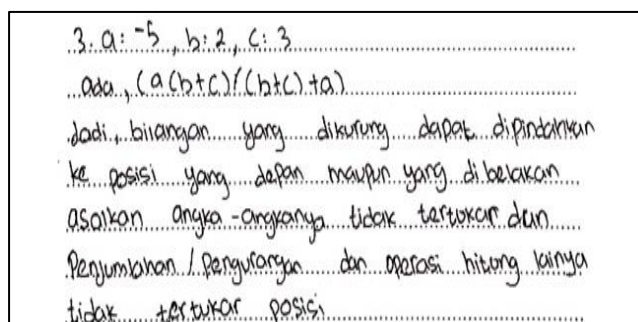 3. a: -5, b: 2, c: 3
ada, (a(b+c)/(b+c)+a)
Jadi, bilangan yang dikurung dapat dipindahkan
ke posisi yang depan maupun yang dibelakan
asalkan angka-angkanya tidak tertukar dan
Penjumlahan/pengurangan dan operasi hitung lainya
tidak tertukar posisi